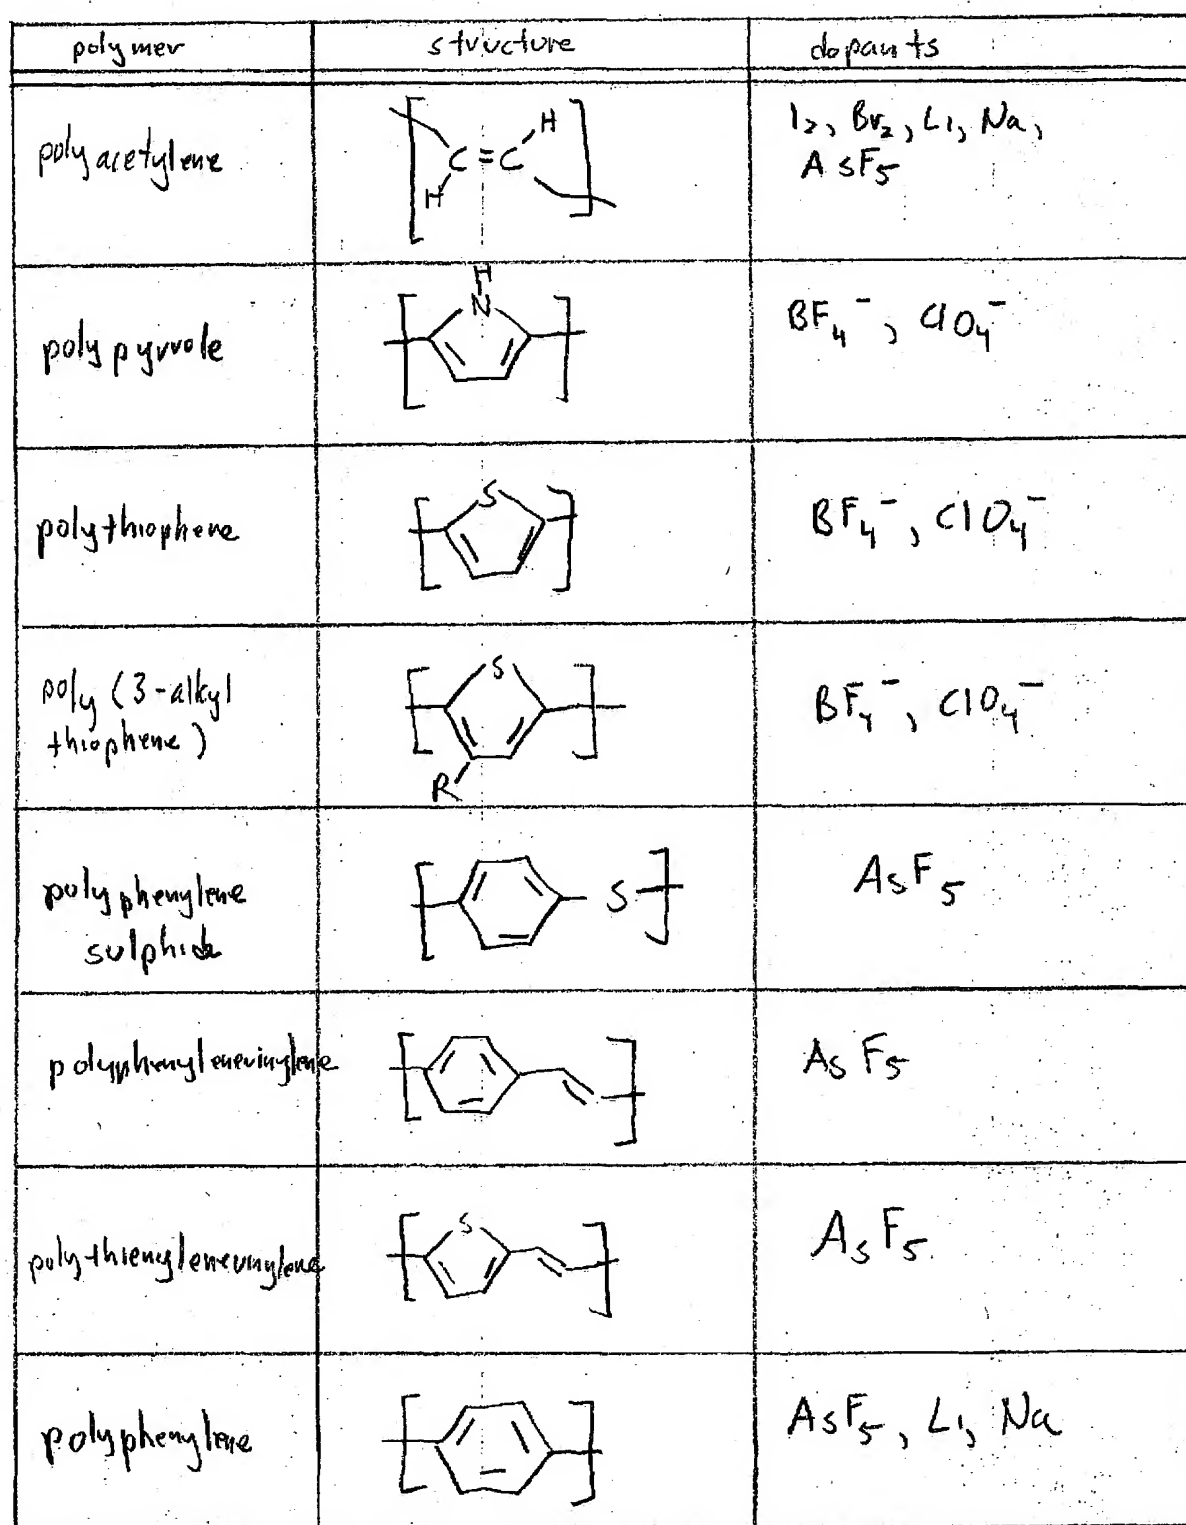 polymer structure dopants
polyacetylene
H
C=C
H
I2, Br2, Li, Na,
AsF5
polypyrrole
H
N
BF4⁻, ClO4⁻
polythiophene
S
BF4⁻, ClO4⁻
poly (3-alkyl
thiophene)
S
R
BF4⁻, ClO4⁻
polyphenylene
sulphide
S
AsF5
polyphenylenevinylene
AsF5
polythienylenevinylene
S
AsF5
polyphenylene
AsF5, Li, Na